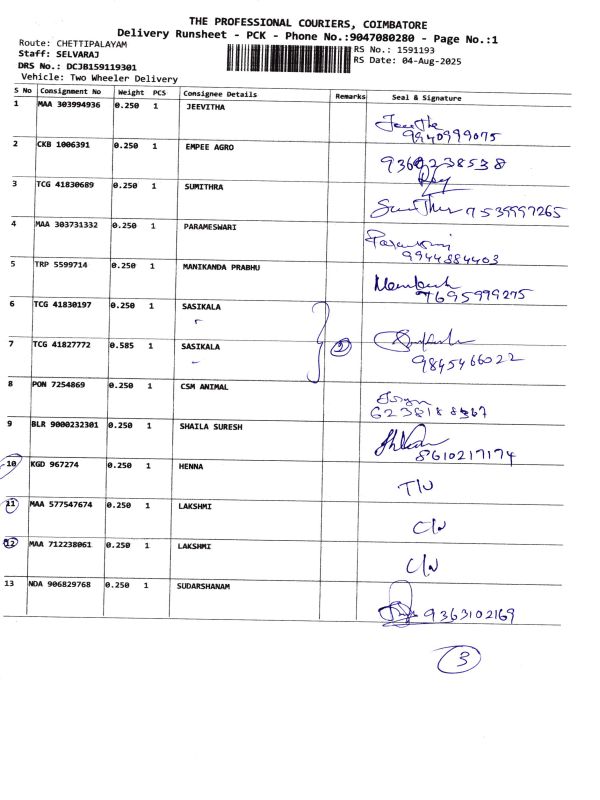 THE PROFESSIONAL COURIERS, COIMBATORE
Delivery Runsheet - PCK - Phone No.:9047080280 - Page No.:1
Route: CHETTIPALAYAM
Staff: SELVARAJ
RS No.: 1591193
DRS No.: DCJB159119301
RS Date: 04-Aug-2025
Vehicle: Two Wheeler Delivery
S No Consignment No Weight PCS Consignee Details Remarks Seal & Signature
1 MAA 303994936 0.250 1 JEEVITHA
9940999075
2 CKB 1006391 0.250 1 EMPEE AGRO
9360238538
3 TCG 41830689 0.250 1 SUMITHRA
7539997265
4 MAA 303731332 0.250 1 PARAMESWARI
9944884403
5 TRP 5599714 0.250 1 MANIKANDA PRABHU
7695999275
6 TCG 41830197 0.250 1 SASIKALA
7 TCG 41827772 0.585 1 SASIKALA 2
9845466022
8 PON 7254869 0.250 1 CSM ANIMAL
9 BLR 9000232301 0.250 1 SHAILA SURESH
8610217174
10 KGD 967274 0.250 1 HENNA
T/N
11 MAA 577547674 0.250 1 LAKSHMI
C/N
12 MAA 712238061 0.250 1 LAKSHMI
C/N
13 NDA 906829768 0.250 1 SUDARSHANAM
9363102169
3